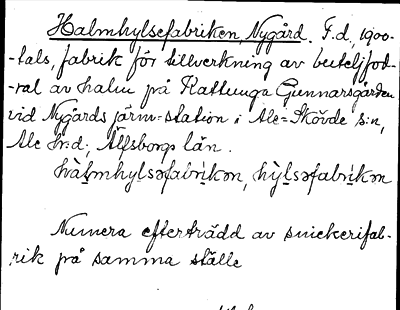 Halmhylsefabriken, Nygård. F.d., 1900-
-tals, fabrik för tillverkning av buteljfod-
-ral av halm på Kattunga Gunnarsgården
vid Nygårds järn-station i Ale-Skövde s:n,
Ale hrd., Älfsborgs län.
hàlmhylsəfabrikən, hỳlsəfabrikən
Numera efterträdd av snickerifab-
rik på samma ställe